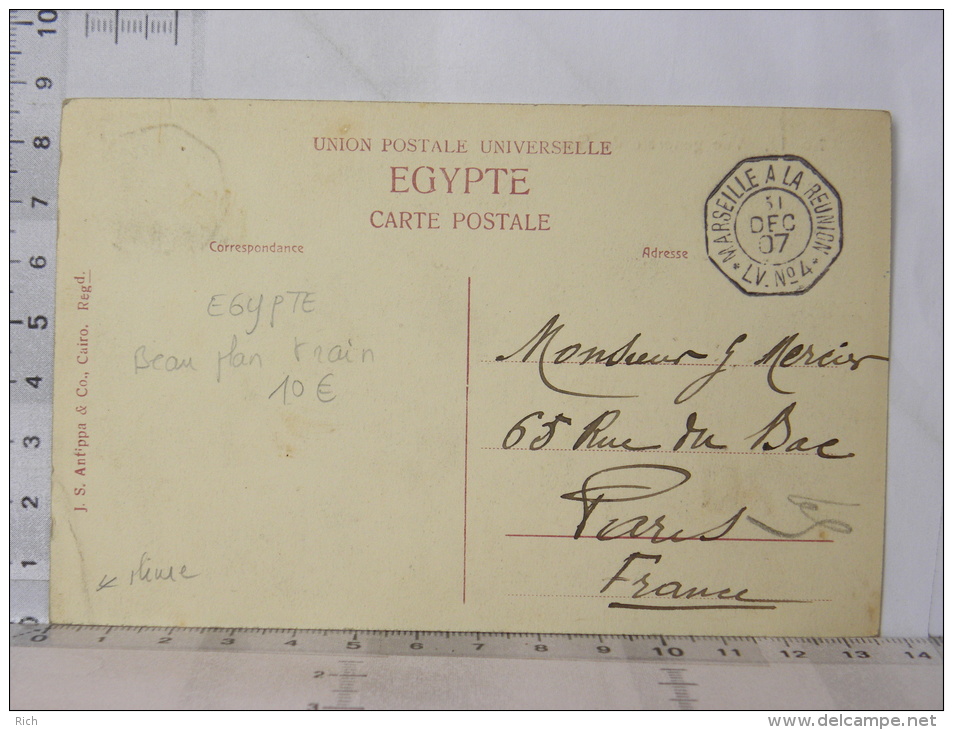 UNION POSTALE UNIVERSELLE
EGYPTE
CARTE POSTALE
Correspondance
Adresse
MARSEILLE A LA REUNION
31
DEC
07
* LV. No 4 *
J. S. Antippa & Co., Cairo. Regd.
EGYPTE
Beau plan train
10 €
Monsieur G. Mercier
65 Rue du Bac
Paris
France
10
9
8
7
6
5
4
3
2
1
0
0 1 2 3 4 5 6 7 8 9 10 11 12 13 14
2
3
Rich
www.delcampe.net